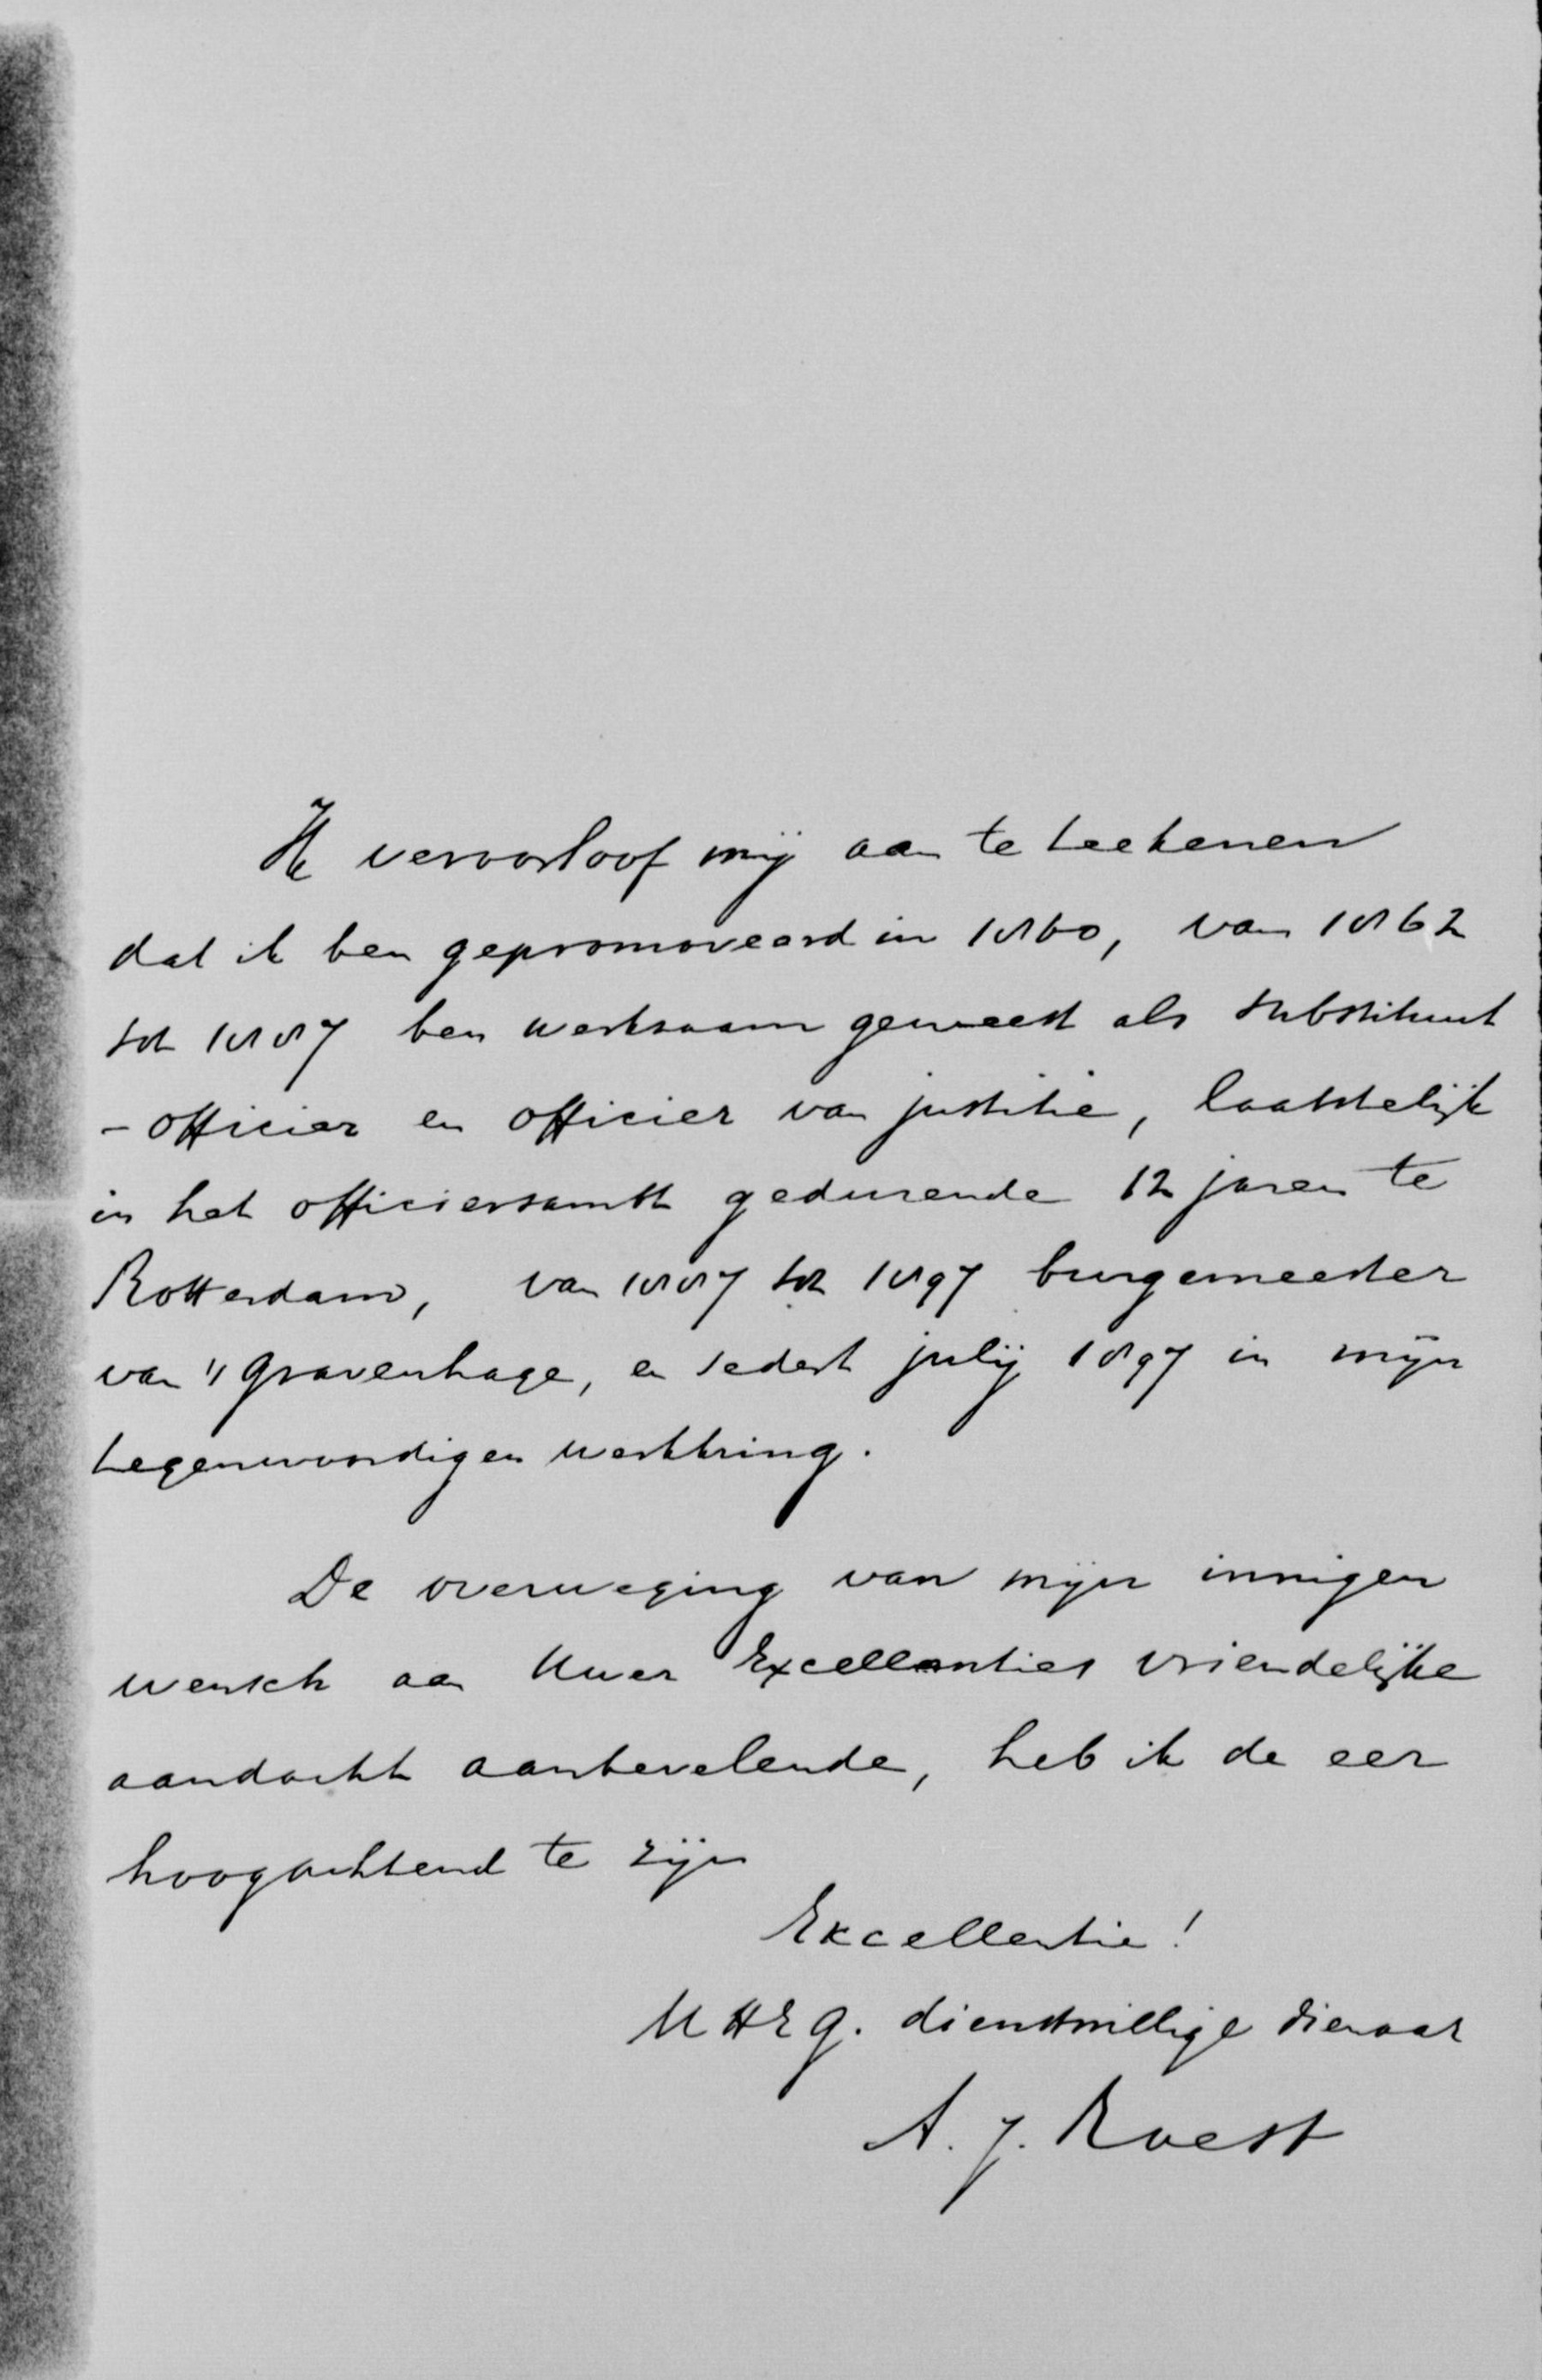 Ik veroorloof mij aan te teekenen
dat ik ben gepromoveerd in 1860, van 1862
tot 1887 ben werksaam geweest als substituut
- officier en officier van justitie, laatstelijk
in het officiersambt gedurende 12 jaren te
Rotterdam, van 1887 tot 1897 burgemeester
van 's Gravenhage, en sedert julij 1897 in mijn
tegenwoordigen werkkring.
De overweging van mijn innigen
wensch aan Uwer Excellenties vriendelijke
aandacht aanbevelende, heb ik de eer
hoogachtend te zijn
Excellentie!
UHEG. dienstwillige dienaar
A. J. Roest